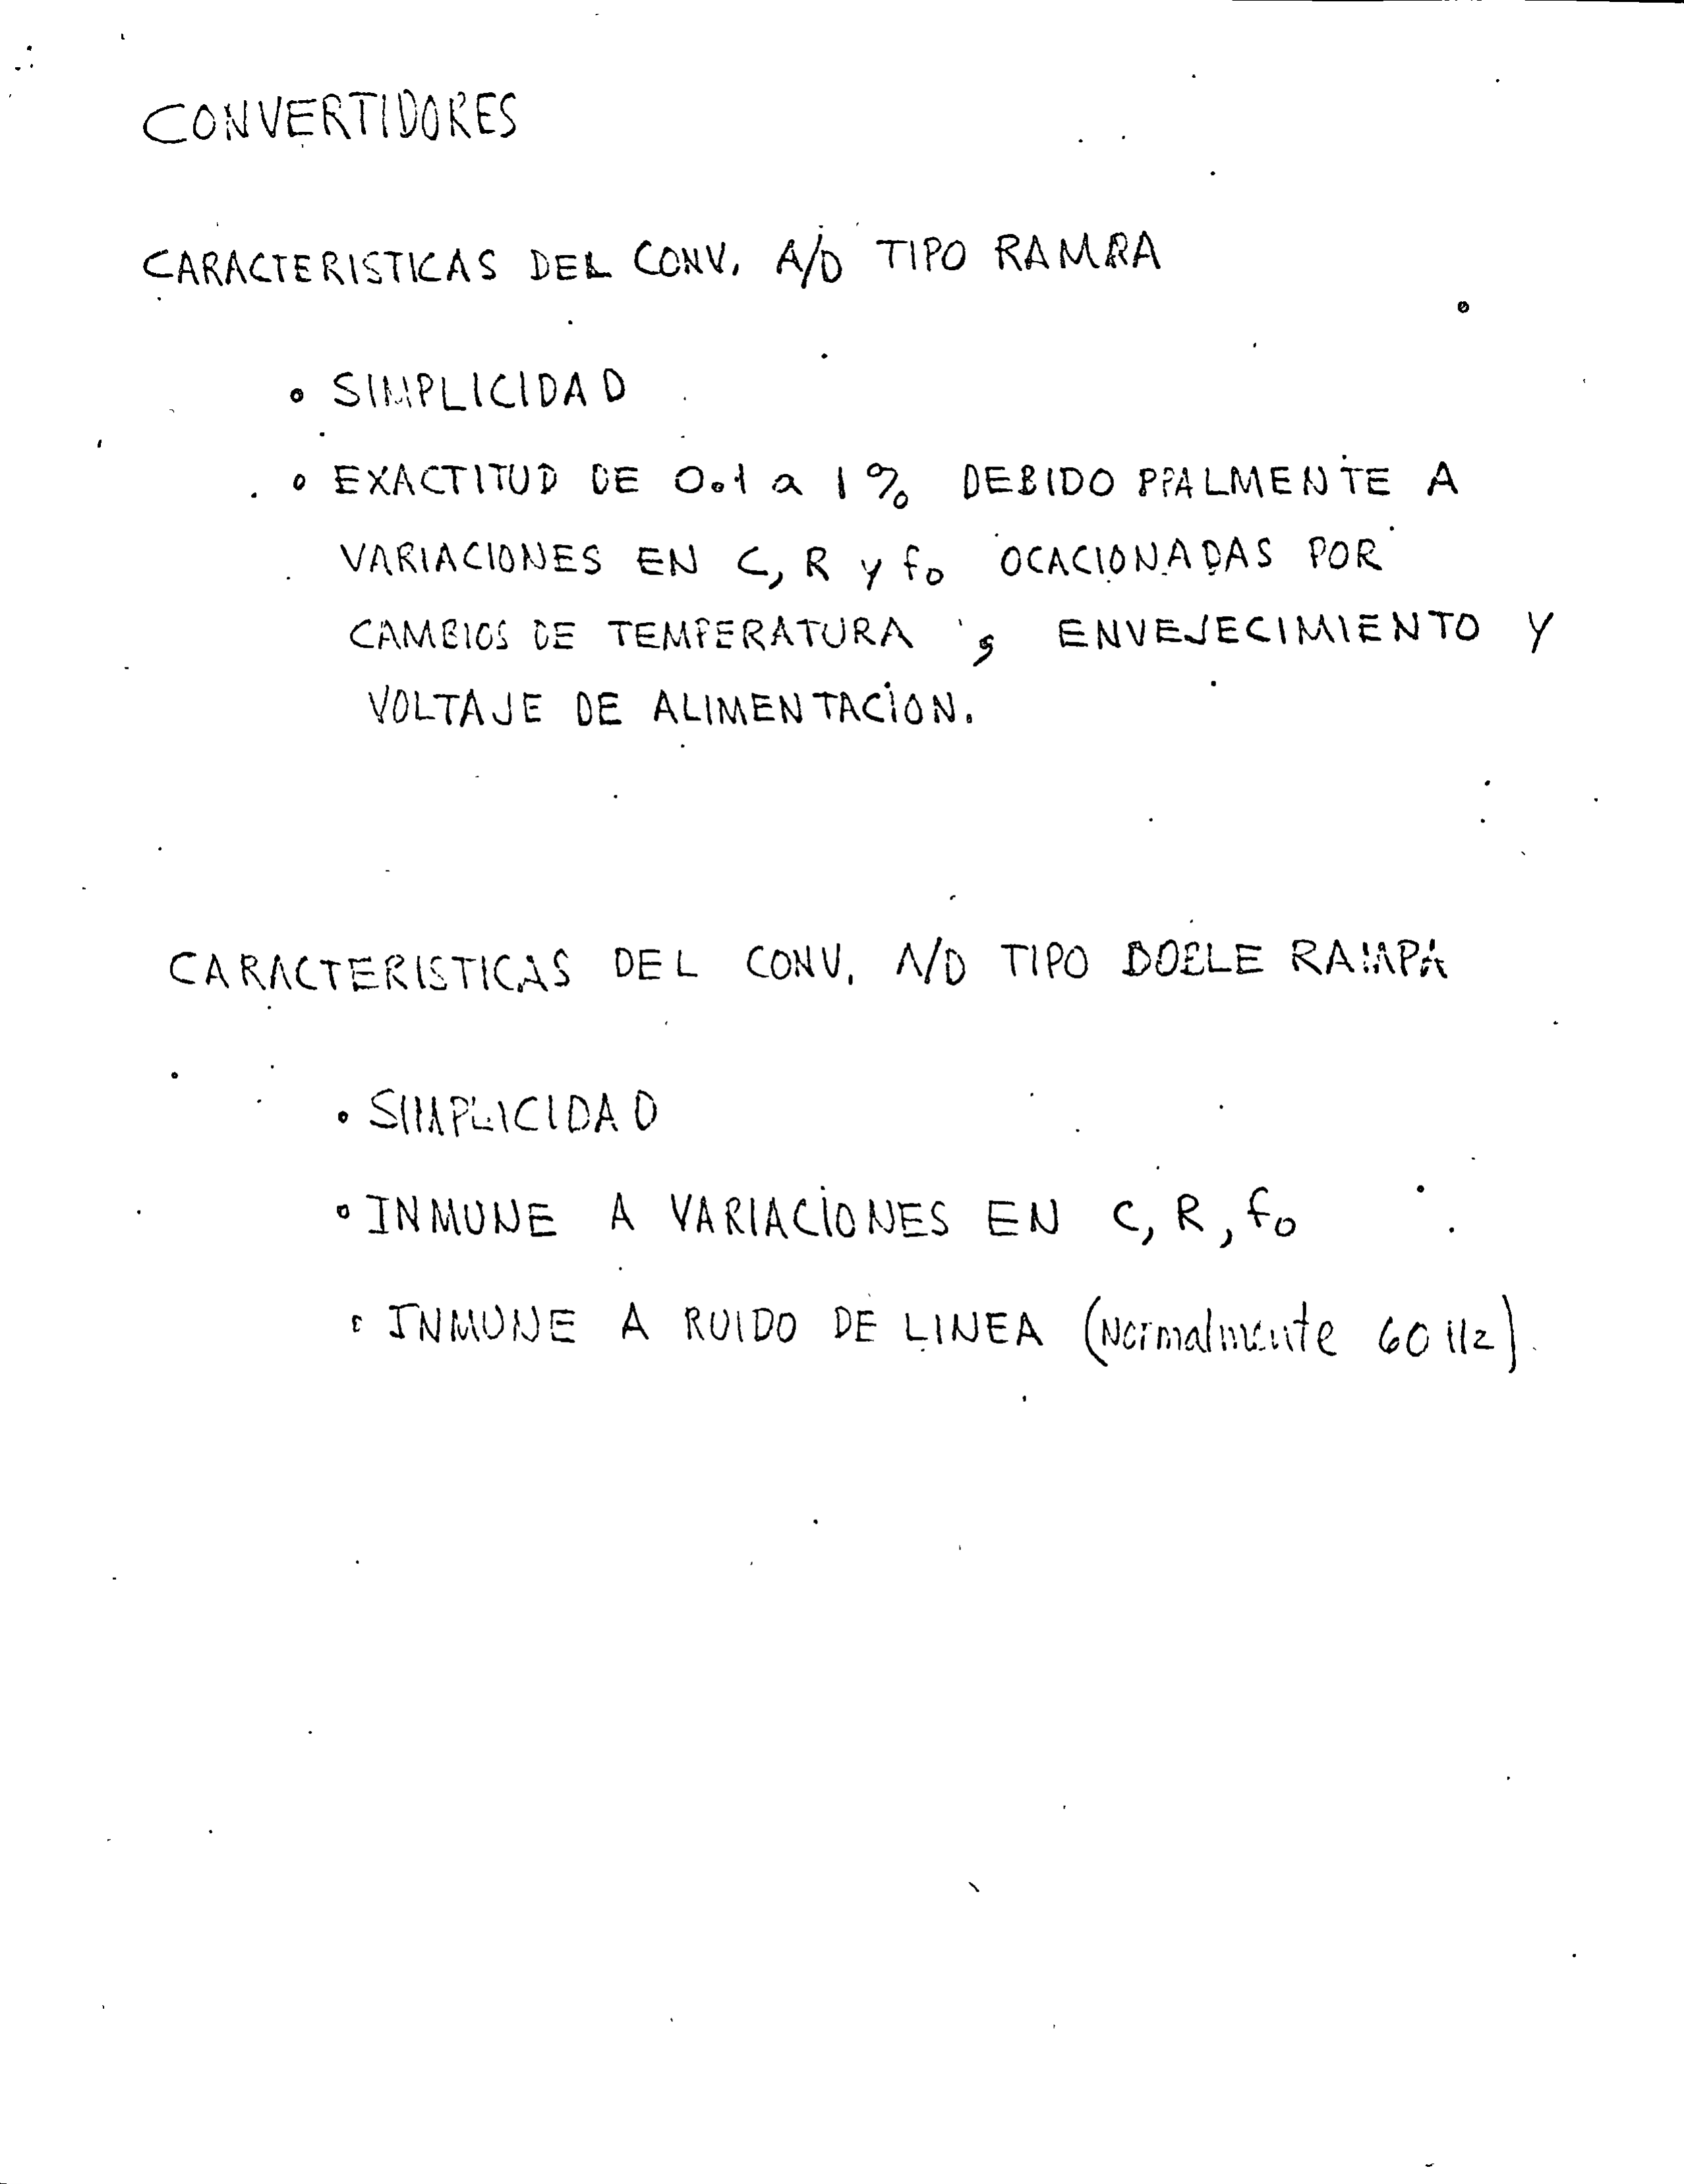 CONVERTIDORES
CARACTERISTICAS DEL CONV. A/D TIPO RAMPA
• SIMPLICIDAD
• EXACTITUD DE 0.1 a 1% DEBIDO PPALMENTE A
VARIACIONES EN C, R y fo OCACIONADAS POR
CAMBIOS DE TEMPERATURA , ENVEJECIMIENTO Y
VOLTAJE DE ALIMENTACION.
CARACTERISTICAS DEL CONV. A/D TIPO DOBLE RAMPA
• SIMPLICIDAD
• INMUNE A VARIACIONES EN C, R, fo
• INMUNE A RUIDO DE LINEA (Normalmente 60 Hz).